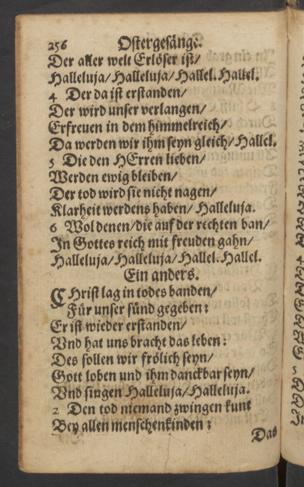 256 Ostergesänge.
Der aller welt Erlöser ist/
Halleluja/Halleluja/Hallel. Hallel.
4 Der da ist erstanden/
Der wird unser verlangen/
Erfreuen in dem himmelreich/
Da werden wir ihm seyn gleich/Hallel.
5 Die den HErren lieben/
Werden ewig bleiben/
Der tod wird sie nicht nagen/
Klarheit werdens haben/ Halleluja.
6 Wol denen/die auf der rechten ban/
In Gottes reich mit freuden gahn/
Halleluja/Halleluja/Hallel. Hallel.
Ein anders.
CHrist lag in todes banden/
Für unser sünd gegeben:
Er ist wieder erstanden/
Vnd hat uns bracht das leben:
Des sollen wir frölich seyn/
Gott loben und ihm danckbar seyn/
Vnd singen Halleluja/Halleluja.
2 Den tod niemand zwingen kunt
Bey allen menschenkinden:
Das